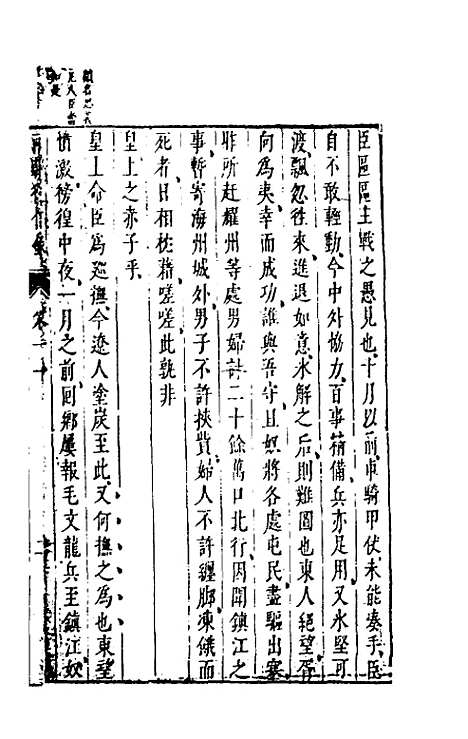 臣區區主戰之愚見也十月以前車騎甲仗未能湊手臣
自不敢輕動今中外協力百事猶備兵亦足用又氷堅可
渡飄忽往來進退如意氷解之后則難圖也東人絕望胥
向爲夷幸而成功誰與吾守且奴將各處屯民盡驅出寨
昨所赶耀州等處男婦計二十餘萬口北行因聞鎮江之
事暫寄海州城外男子不許挾貲婦人不許纏脚凍餓而
死者日相枕藉嗟嗟此孰非
皇上之赤子乎
皇上命臣爲巡撫今遼人塗炭至此又何撫之爲也東望
憤激徬徨中夜一月之前回鄉屢報毛文龍兵至鎮江奴
卷二十